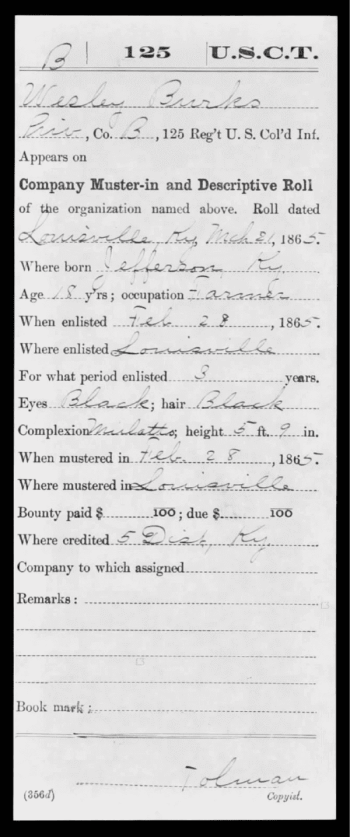 B | 125 | U.S.C.T.
Wesley Burks
Priv, Co. B, 125 Reg't U. S. Col'd Inf.
Appears on
Company Muster-in and Descriptive Roll
of the organization named above. Roll dated
Louisville, Ky, Mch 21, 1865.
Where born Jefferson Ky
Age 18 y'rs; occupation Farmer
When enlisted Feb 28, 1865.
Where enlisted Louisville
For what period enlisted 3 years.
Eyes Black; hair Black
Complexion Mulatto; height 5 ft. 9 in.
When mustered in Feb 28, 1865.
Where mustered in Louisville
Bounty paid $ 100; due $ 100
Where credited 5 Dist, Ky
Company to which assigned
Remarks:
Book mark:
Tolman
(356d) Copyist.